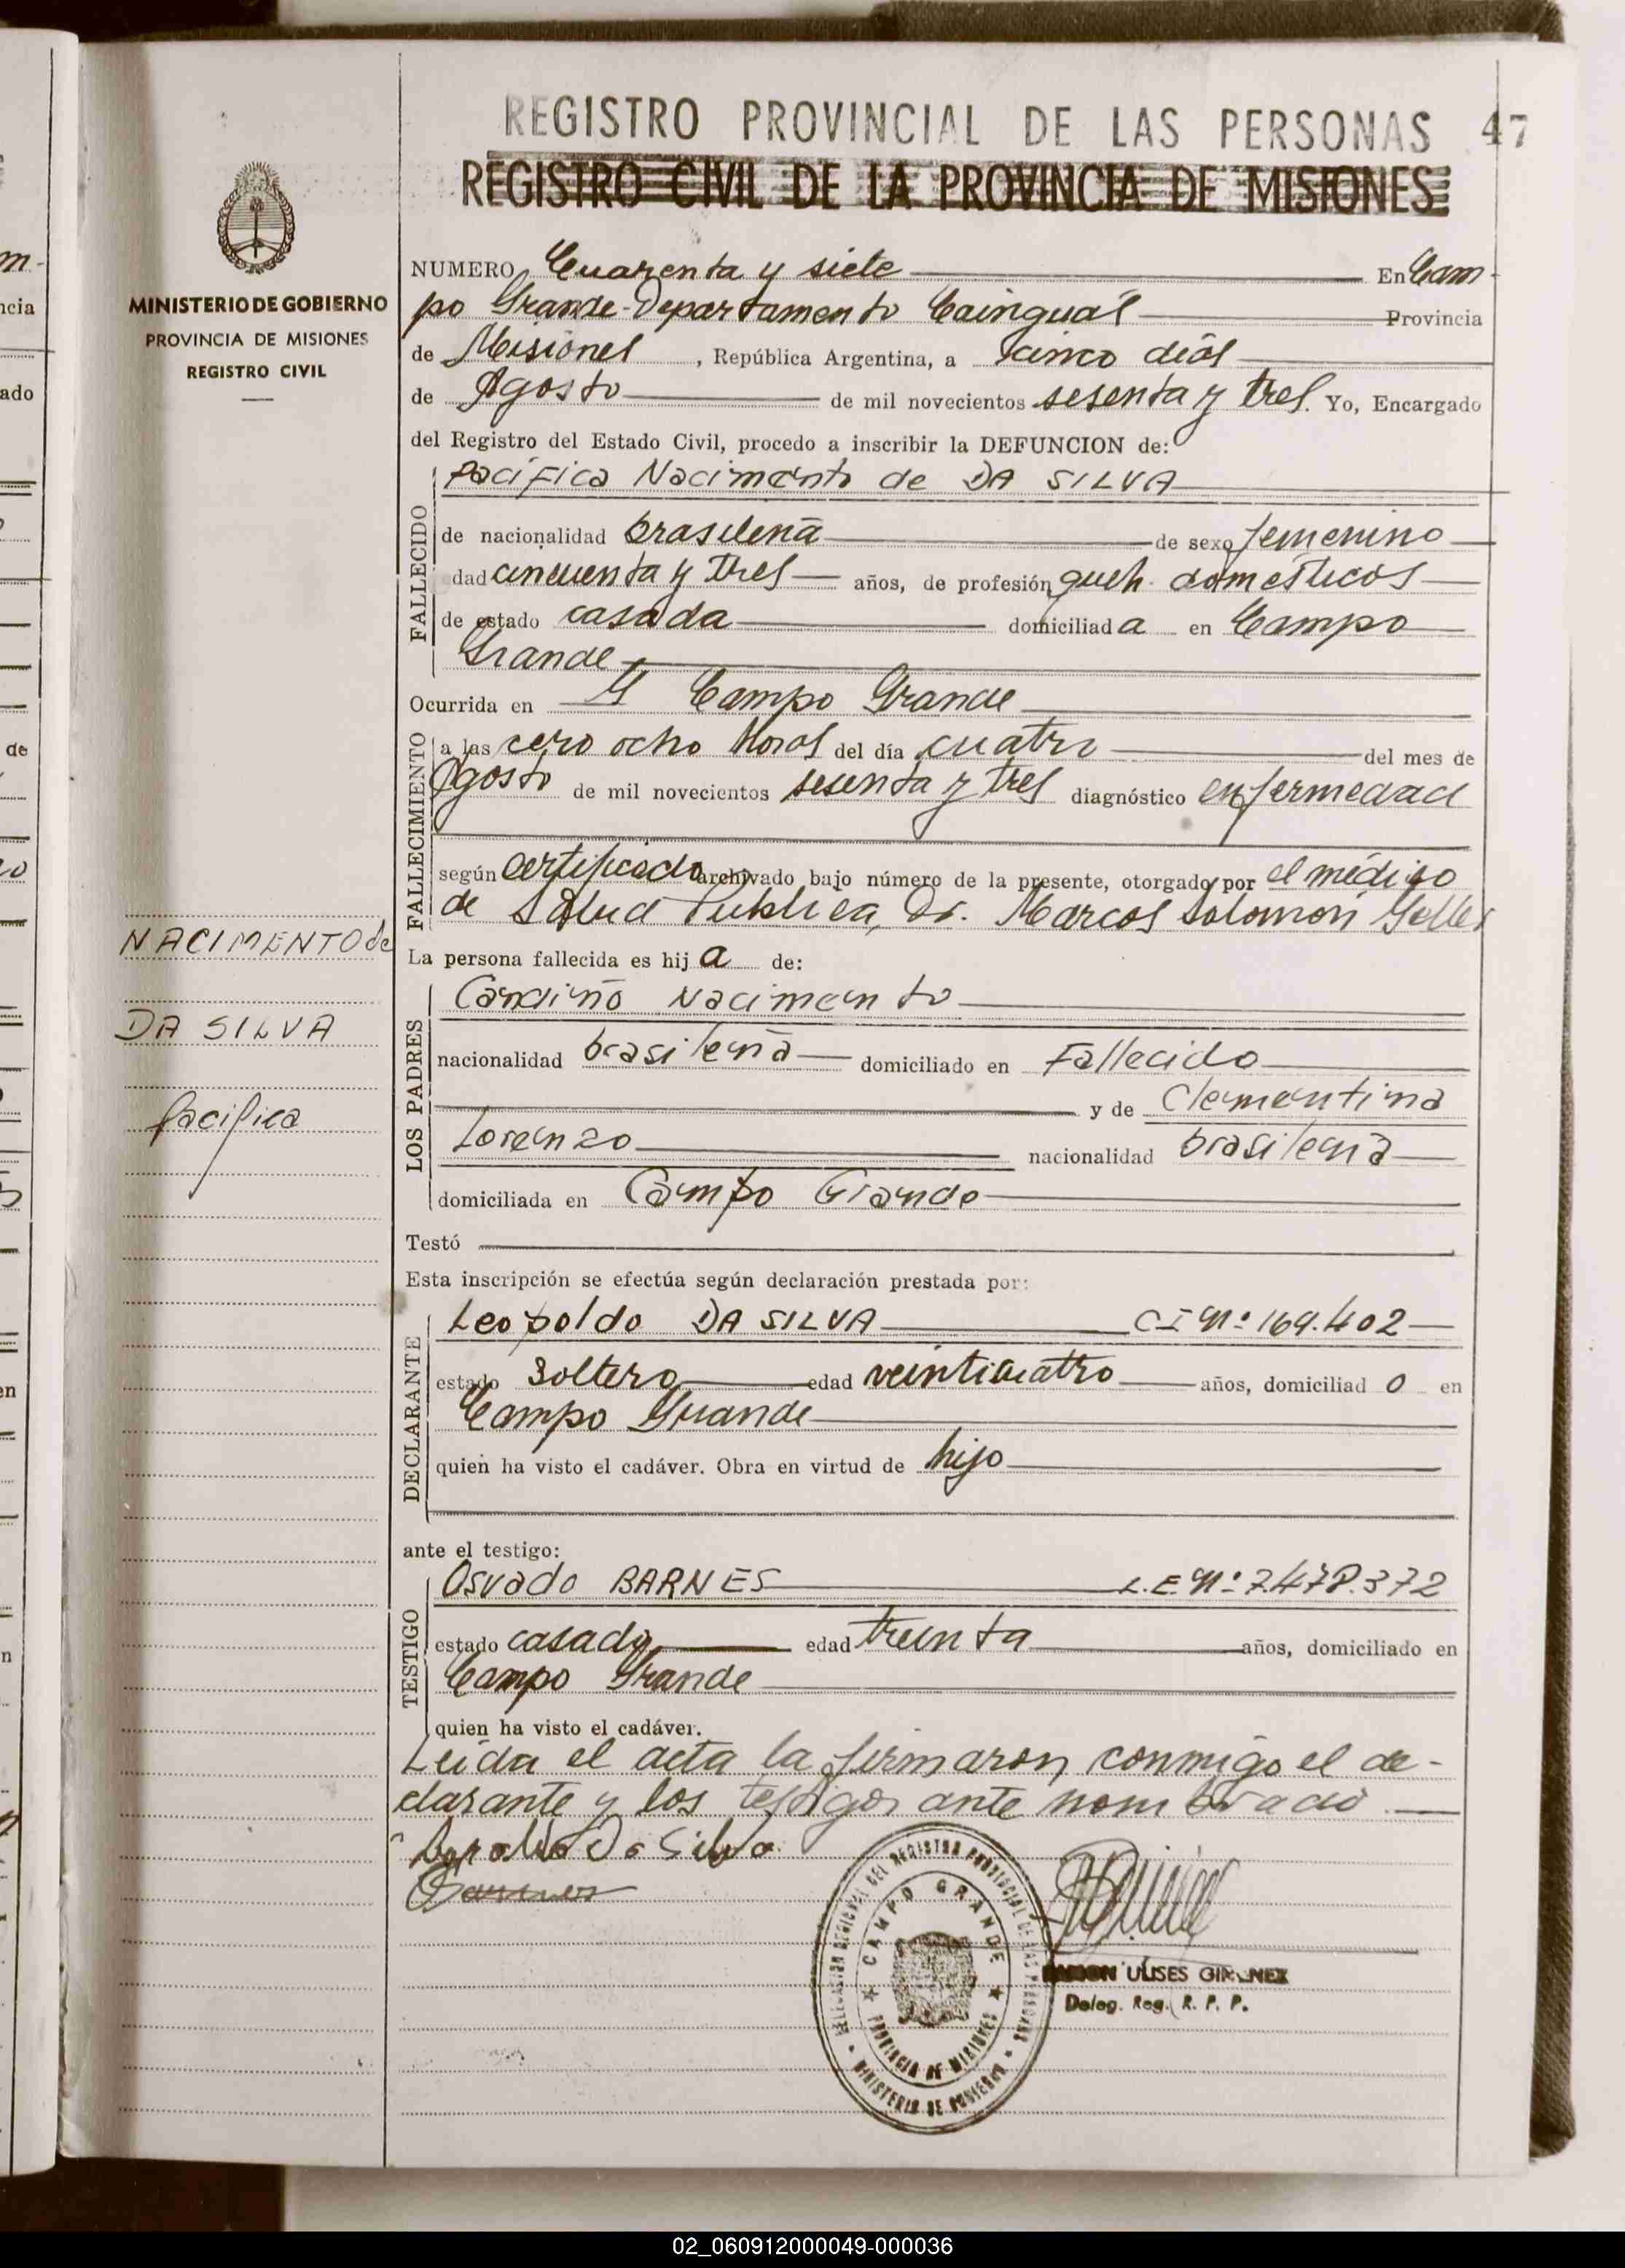 REGISTRO PROVINCIAL DE LAS PERSONAS 47
REGISTRO CIVIL DE LA PROVINCIA DE MISIONES
MINISTERIO DE GOBIERNO
PROVINCIA DE MISIONES
REGISTRO CIVIL
NUMERO Cuarenta y siete En Cam-
po Grande-Departamento Cainguás Provincia
de Misiones, República Argentina, a cinco días
de Agosto de mil novecientos sesenta y tres. Yo, Encargado
del Registro del Estado Civil, procedo a inscribir la DEFUNCION de:
FALLECIDO
Pacífica Nacimento de DA SILVA
de nacionalidad brasileña de sexo femenino
dad cincuenta y tres años, de profesión queh. domesticos
de estado casada domiciliad a en Campo
Grande
Ocurrida en Campo Grande
FALLECIMIENTO
a las cero ocho horas del día cuatro del mes de
Agosto de mil novecientos sesenta y tres diagnóstico enfermedad
según certificado archivado bajo número de la presente, otorgado por el médico
de Salud Publica, Dr. Marcos Solomon
NACIMENTO de
DA SILVA
Pacifica
La persona fallecida es hij a de:
LOS PADRES
Candiño Nacimento
nacionalidad brasileña domiciliado en Fallecido
y de Clementina
Lorenzo nacionalidad brasileña
domiciliada en Campo Grande
Testó
Esta inscripción se efectúa según declaración prestada por:
DECLARANTE
Leopoldo DA SILVA C I Nº 169.402
estado Soltero edad veinticuatro años, domiciliad o en
Campo Grande
quien ha visto el cadáver. Obra en virtud de hijo
ante el testigo:
TESTIGO
Osvado BARNES L.E. Nº 7.478.372
estado casado edad treinta años, domiciliado en
Campo Grande
quien ha visto el cadáver.
Leida el acta la firmaron conmigo el de-
clarante y los testigos ante nombrado
Da Silva
CAMPO GRANDE
PROVINCIA DE MISIONES
MINISTERIO DE GOBIERNO
RAMON ULISES GIMENEZ
Deleg. Reg. R. P. P.
02_060912000049-000036